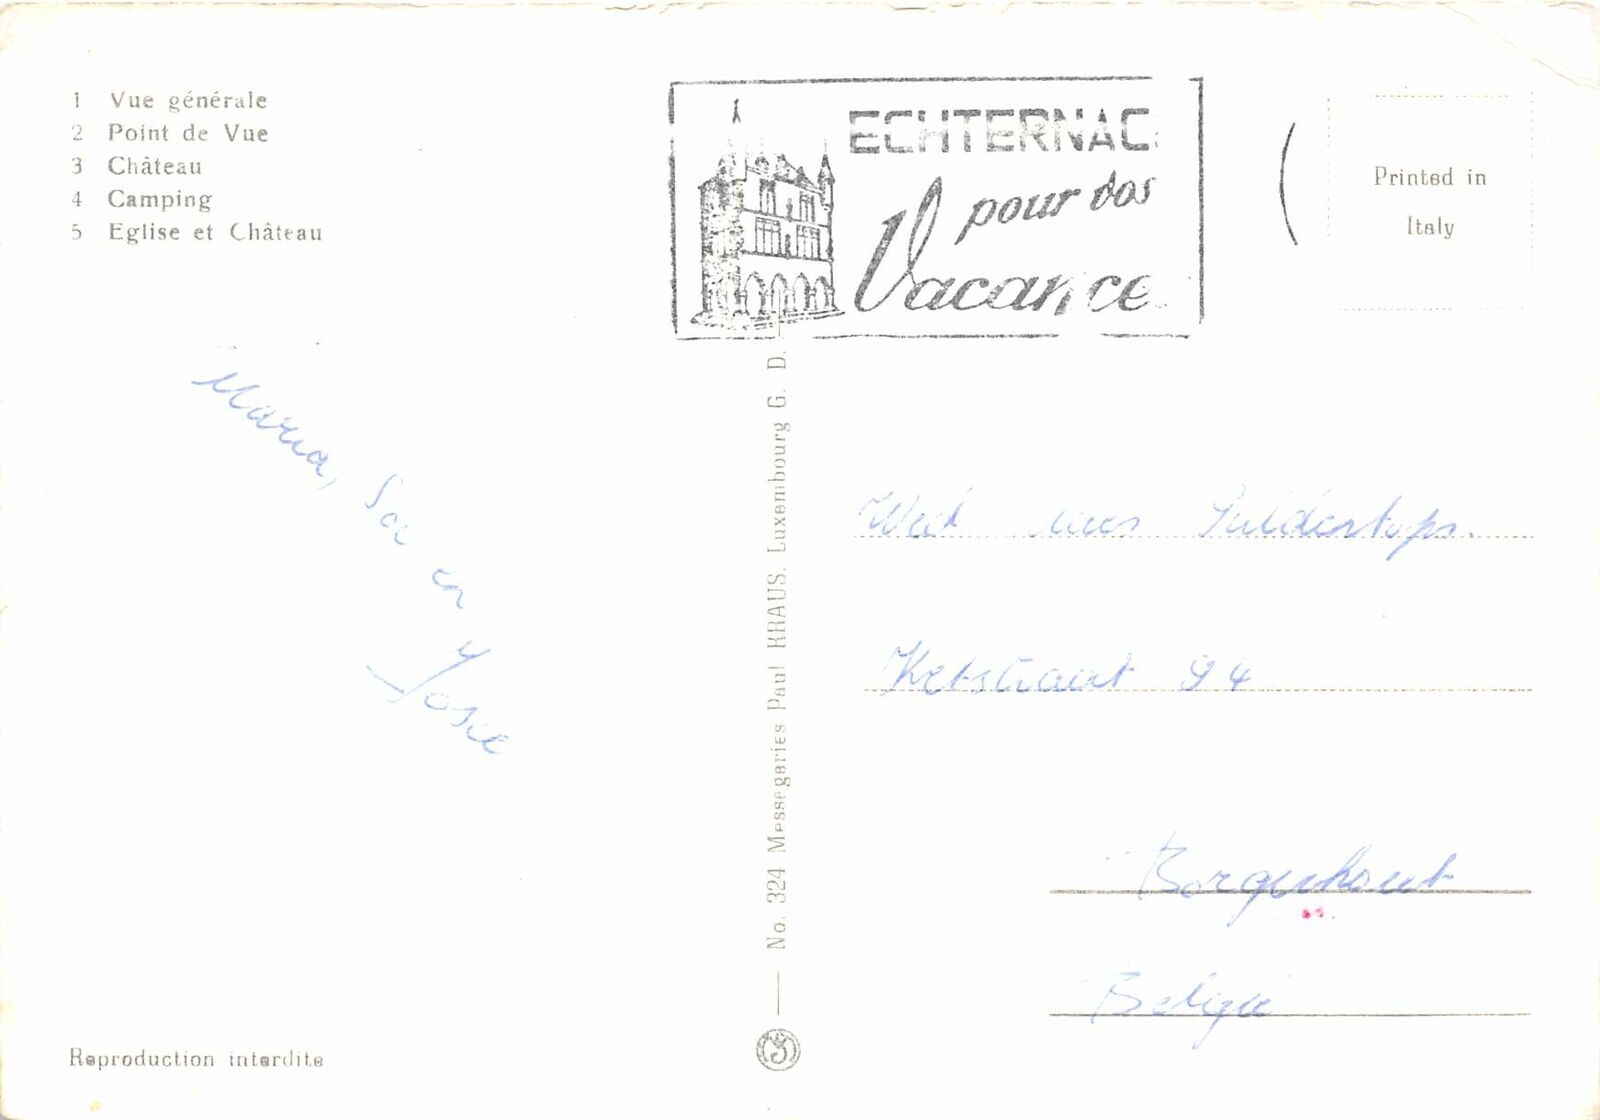 1 Vue générale
2 Point de Vue
3 Château
4 Camping
5 Eglise et Château
ECHTERNAC
pour vos
Vacance
Printed in
Italy
Maria,
en
Josée
No. 324 Messageries Paul KRAUS, Luxembourg G. D.
Wed
Ketstraat 94
Borgerhout
België
Reproduction interdite
3